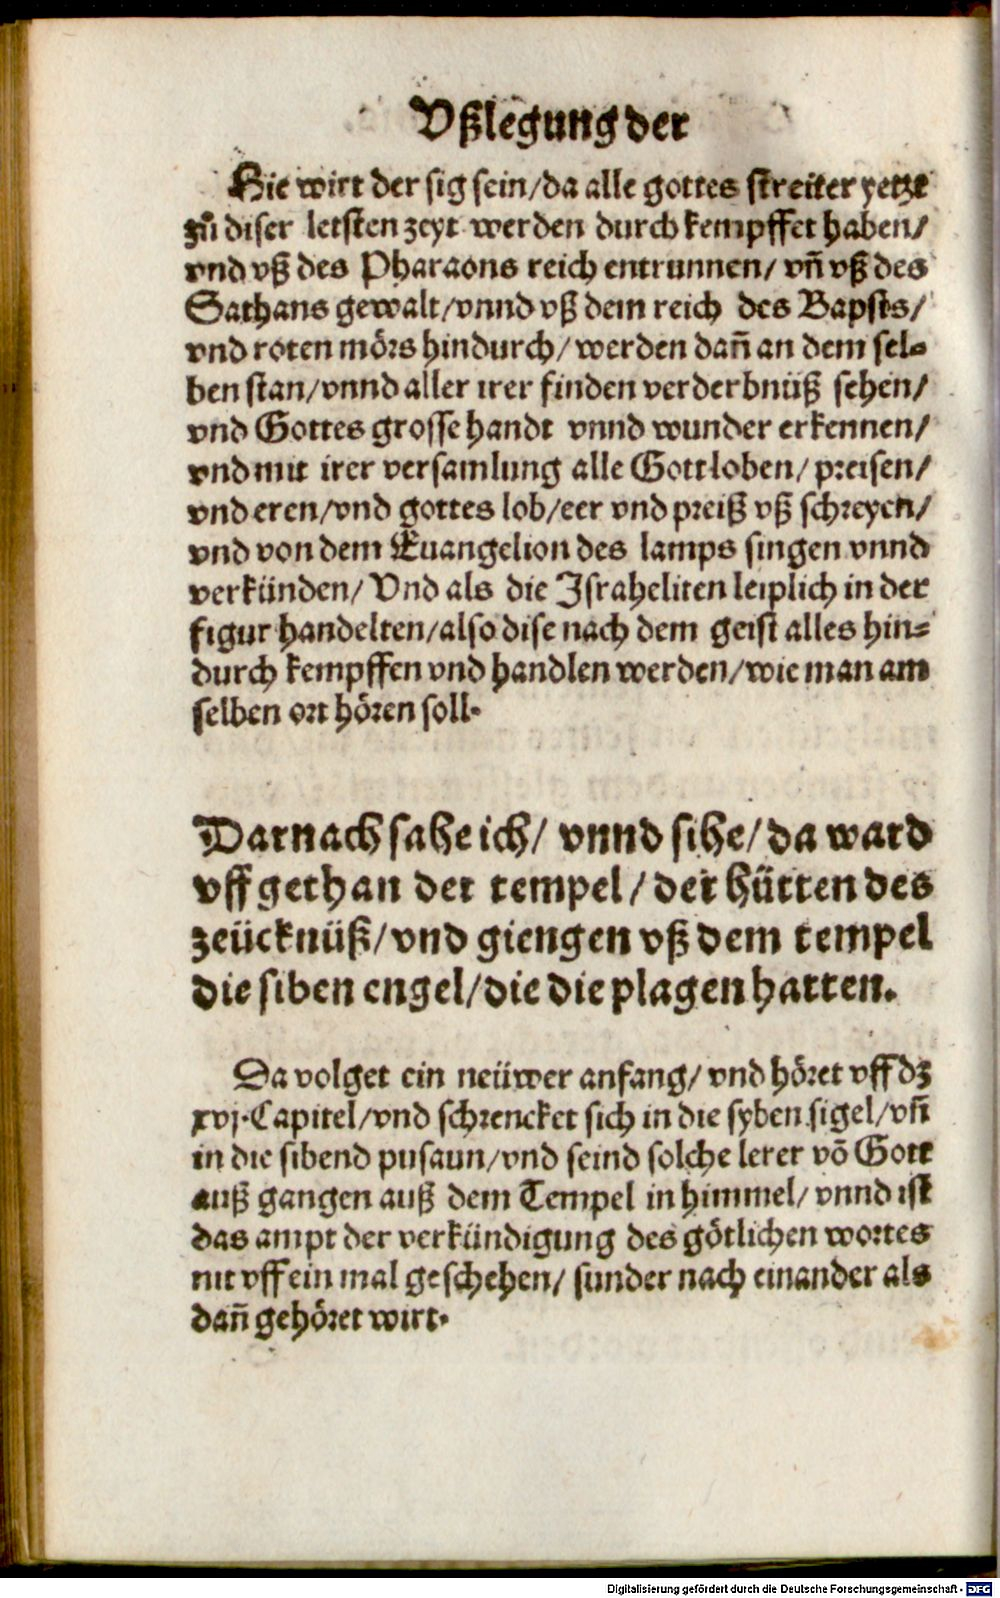 Vßlegung der
Hie wirt der sig sein/da alle gottes streiter yetzt
zů diser letsten zeyt werden durch kempffet haben/
vnd vß des Pharaons reich entrunnen/ vñ vß des
Sathans gewalt/vnnd vß dem reich des Bapsts/
vnd roten mörs hindurch/ werden dañ an dem sel-
ben stan/vnnd aller irer finden verderbnüß sehen/
vnd Gottes grosse handt vnnd wunder erkennen/
vnd mit irer versamlung alle Gott loben/ preisen/
vnd eren/vnd gottes lob/eer vnd preiß vß schreyen/
vnd von dem Euangelion des lamps singen vnnd
verkünden/ Vnd als die Israheliten leiplich in der
figur handelten/also dise nach dem geist alles hin=
durch kempffen vnd handlen werden/wie man am
selben ort hören soll.
Darnach sahe ich/ vnnd sihe/ da ward
vff gethan der tempel/ der hütten des
zeücknüß/vnd giengen vß dem tempel
die siben engel/die die plagen hatten.
Da volget ein neüwer anfang/ vnd höret vff dz
xvj.Capitel/vnd schrencket sich in die syben sigel/vñ
in die sibend pusaun/vnd seind solche lerer võ Gott
auß gangen auß dem Tempel in himmel/ vnnd ist
das ampt der verkündigung des götlichen wortes
nit vff ein mal geschehen/ sunder nach einander als
dañ gehöret wirt.
Digitalisierung gefördert durch die Deutsche Forschungsgemeinschaft - DFG